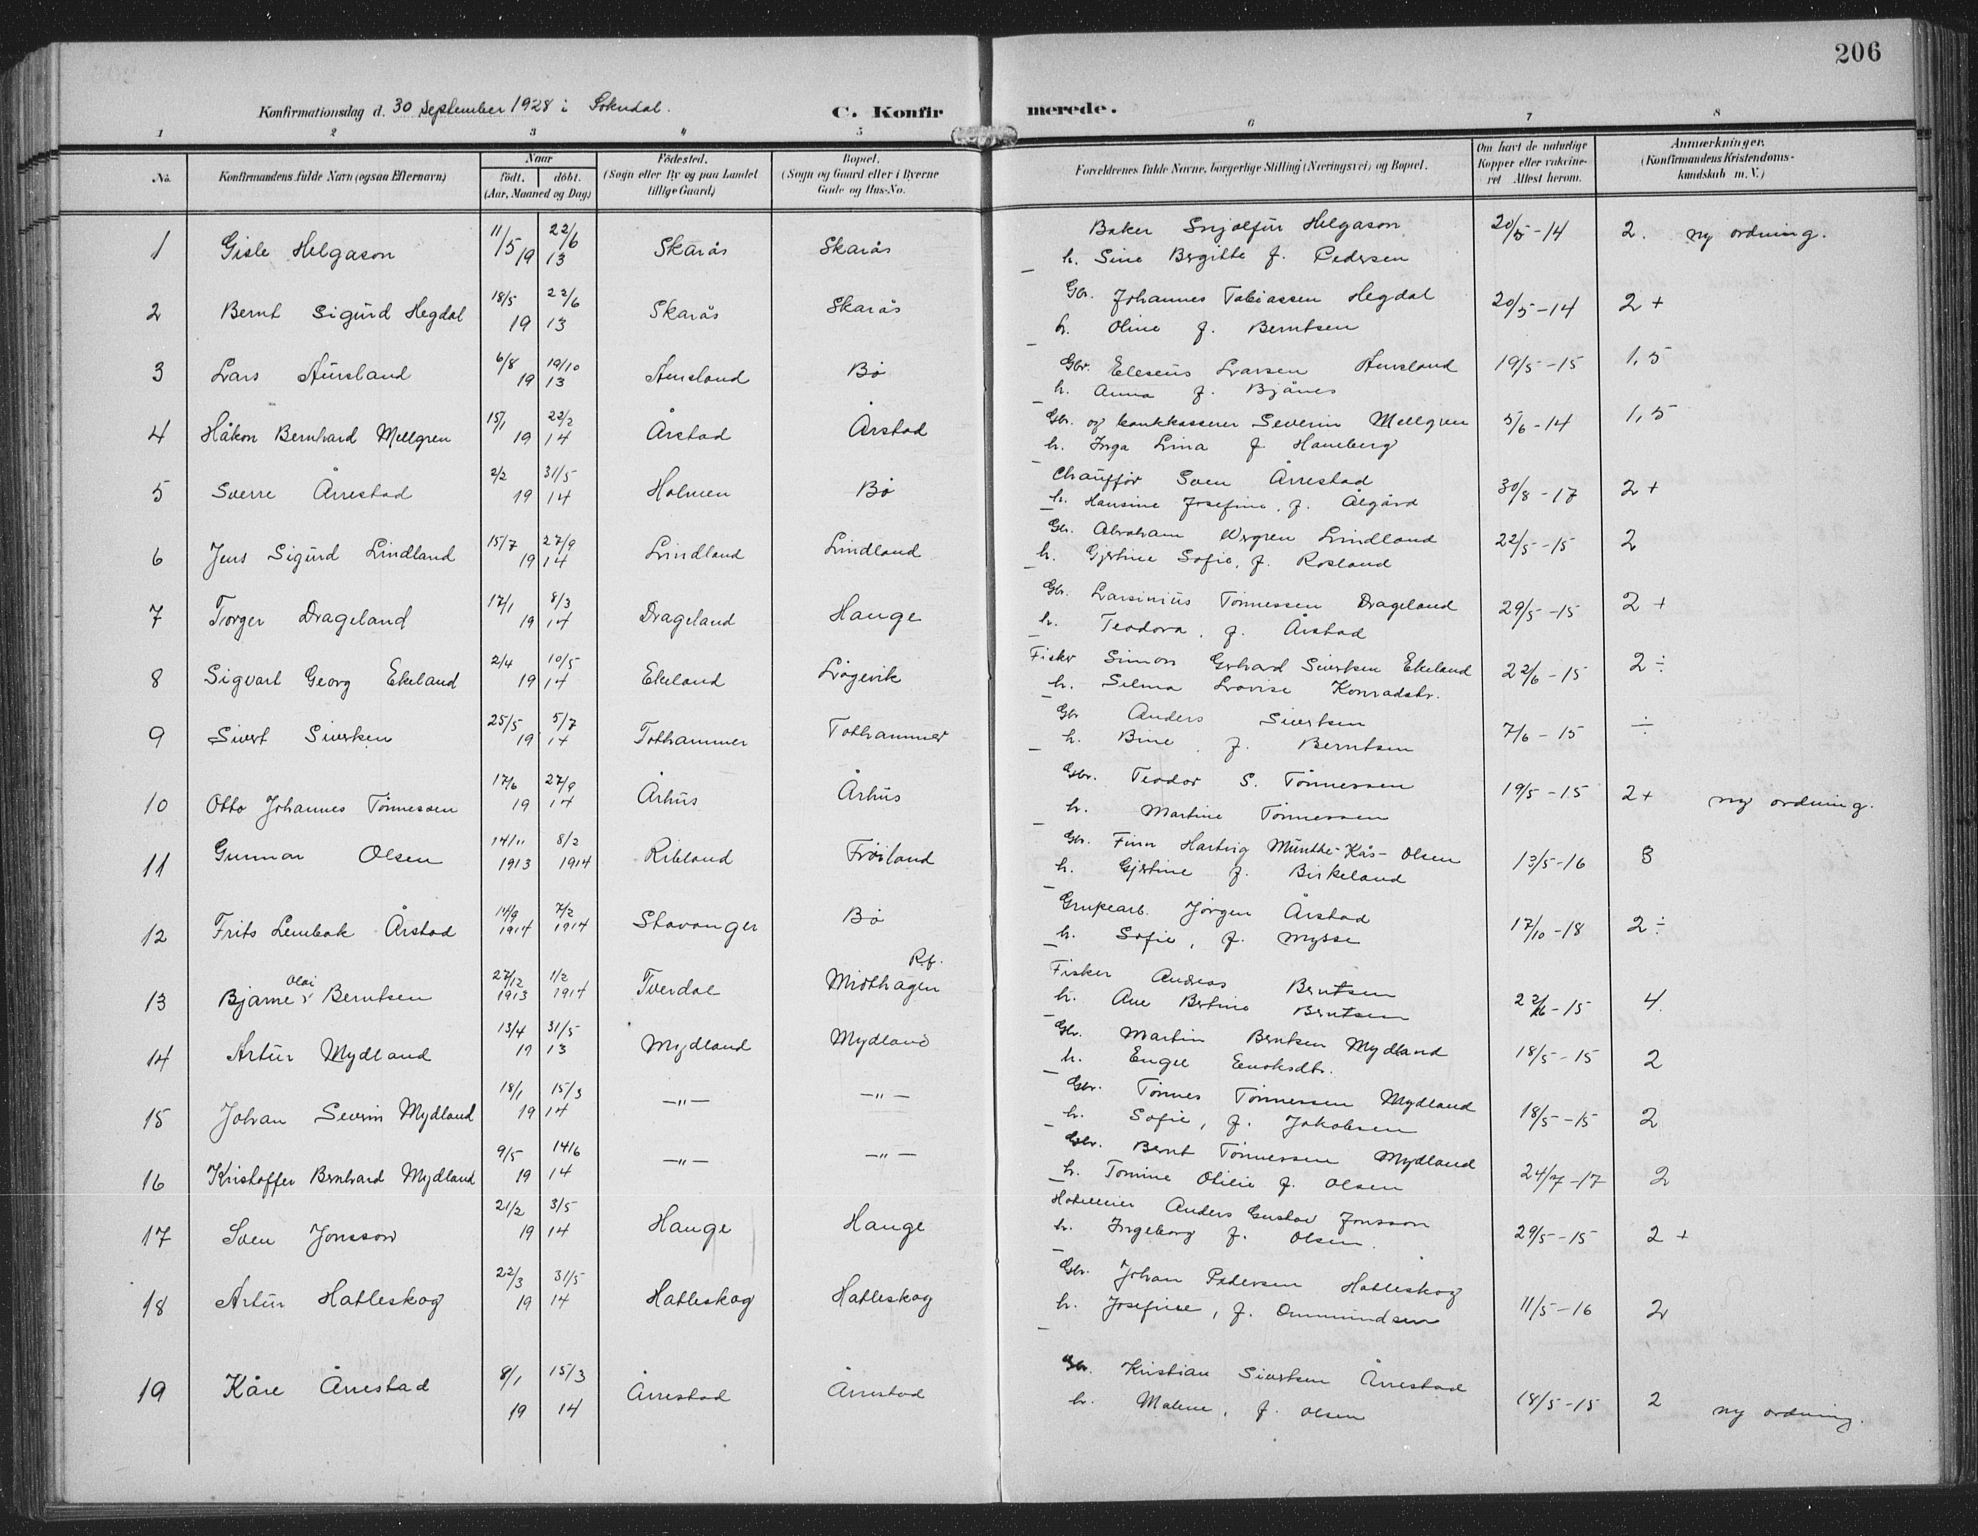 206
Konfirmationsdag d. 30 September 1928 i Sokndal. C. Konfirmerede.
1 2 3 4 5 6 7 8
No. Konfirmandens fulde Navn (ogsaa Efternavn) Naar født. døbt. (Aar, Maaned og Dag) Fødested. (Sogn eller By og paa Landet tillige Gaard) Bopæl. (Sogn og Gaard eller i Byerne Gade og Hus-No. Forældrenes fulde Navne, borgerlige Stilling (Næringsvei) og Bopæl. Om havt de naturlige Kopper eller vaccineret Attest herom. Anmærkninger. (Konfirmandens Kristendomskundskab m. V.)
1 Gisle Helgason 11/5 19 22/6 13 Skarås Skarås Baker Snjolfur Helgason 20/5-14 2. ny ordning.
h. Sine Bergitte f. Pedersen
2 Bernt Sigurd Hegdal 18/5 19 22/6 13 Skarås Skarås Gbr. Johannes Tobiassen Hegdal 20/5-14 2 +
h. Oline f. Berntsen
3 Lars Aursland 6/8 19 19/10 13 Aursland Bø Gbr. Eleseus Larsen Aursland 19/5-15 1,5
h. Anna f. Bjånes
4 Håkon Bernhard Mellgren 15/1 19 22/2 14 Årstad Årstad Gbr. og bankkasserer Severin Mellgren 5/6-14 1,5
h. Inga Lina f. Haneberg
5 Sverre Årrestad 2/2 19 31/5 14 Holmen Bø Chauffør Sven Årrestad 30/8-17 2 +
h. Hansine Josefine, f. Ålgård
6 Jens Sigurd Lindland 15/7 19 27/9 14 Lindland Lindland Gbr. Abraham Lindland 22/5-15 2
h. Gjertine Sofie, f. Rosland
7 Torger Drageland 17/1 19 8/3 14 Drageland Hauge Gbr. Larsinius Tønnessen Drageland 29/5-15 2 +
h. Teodora, f. Årstad
8 Sigvart Georg Ekeland 2/4 19 10/5 14 Ekeland Løgevik Fisker Simon Gerhard Sivertsen Ekeland 22/6-15 2 ÷
h. Selma Lovise Konradsdtr.
9 Sivert Sivertsen 25/5 19 5/7 14 Tothammer Tothammer Gbr Anders Sivertsen 7/6-15 ÷
h. Bine, f. Berntsen
10 Otto Johannes Tønnessen 17/6 19 27/9 14 Århus Århus Gbr. Teodor S. Tønnessen 19/5-15 2+ ny ordning.
h. Martine Tønnessen
11 Gunnar Olsen 14/11 1913 8/2 1914 Ribland Frøiland Gbr. Finn Hartvig Munthe-Kås-Olsen 13/5-16 3
h. Gjertine f. Birkeland
12 Frits Lembak Årstad 14/9 1914 7/2 1914 Stavanger Bø Grubearb. Jørgen Årstad 17/10-18 2 ÷
h. Sofie, f. Mysse
13 Bjarne Olai Berntsen 27/12 1913 1/2 1914 Tverdal Rf. Midthagen Fisker Andreas Berntsen 22/6-15 4.
h. Ane Bertine Berntsen
14 Artur Mydland 13/4 19 31/5 13 Mydland Mydland Gbr. Martin Berntsen Mydland 18/5-15 2
h. Engel Enoksdtr.
15 Johan Severin Mydland 18/1 19 15/3 14 -"- -"- Gbr. Tønnes Tønnessen Mydland 18/5-15 2
h. Sofie, f. Jakobsen
16 Kristoffer Bernhard Mydland 9/5 19 14/6 14 -"- -"- Gbr. Bernt Tønnessen Mydland 24/7-17 2
h. Tomine Otilie f. Olsen
17 Sven Jonsson 21/2 19 3/5 14 Hauge Hauge Hotelleier Anders Gustav Jonsson 29/5-15 2 +
h. Ingeborg f. Olsen.
18 Artur Hatleskog 22/3 19 31/5 14 Hatleskog Hatleskog Gbr. Johan Pedersen Hatleskog 11/5-16 2
h. Josefine, f. Ommundsen
19 Kåre Årrestad 8/1 19 15/3 14 Årrestad Årrestad Gbr. Kristian Sivertsen Årrestad 18/5-15 2 ny ordning.
h. Malene, f. Olsen